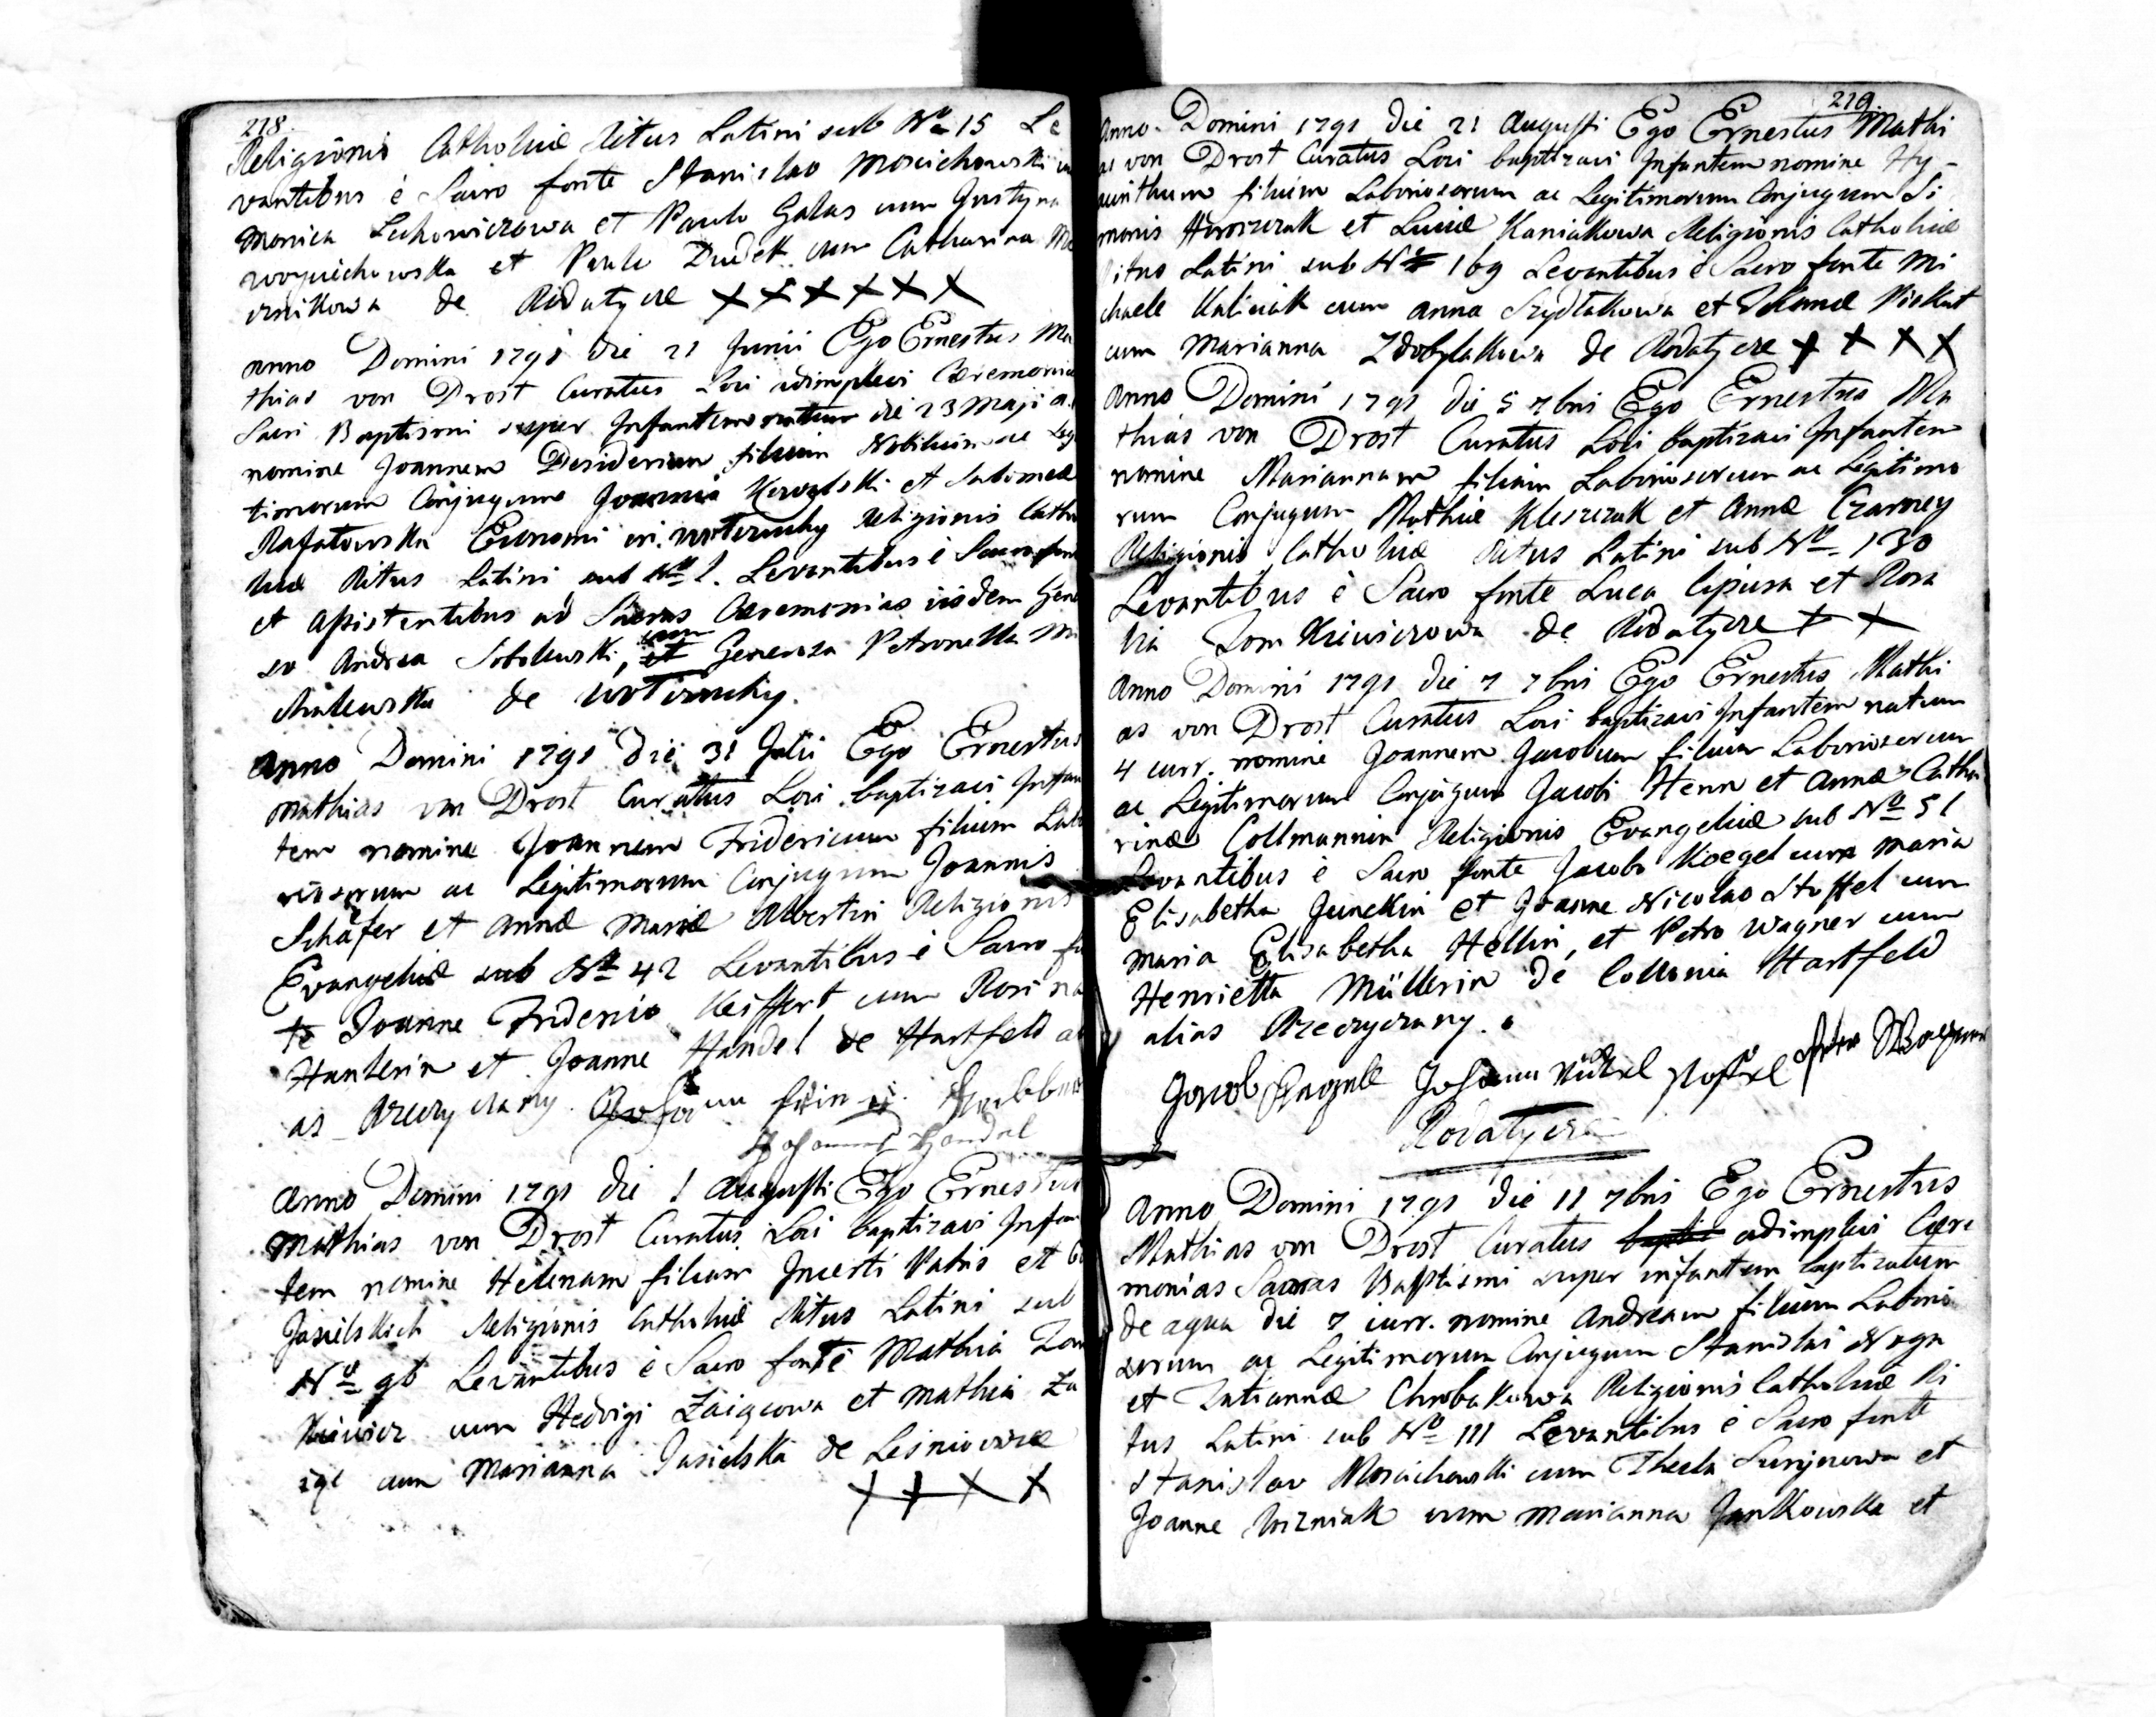 218.
Religionis Catholicæ Ritus Latini sub Nro 15 Le
vantibus è Sacro fonte Stanislao Moscichowski
Monica Lechowiczowa et Paulo Galas cum Justyna
woyciechowska et Paulo Dudek cum Catharina
cznikowa de Rodatycze X X X X X X
Anno Domini 1791 die 21 Junii Ego Ernestus Ma
thias von Drost Curatus Loci adimplevi Cæremonias
Sacri Baptismi super Infantem natum die 23 Maji a.
nomine Joannem Desiderium filium Nobilium ac Legi
timorum Conjugum Joannis et Salomeæ
Rafałowska Economi in Religionis Catho
licæ Ritus Latini sub Nro 1. Levantibus è Sacro fonte
et Assistentibus ad Sacras Cæremonias iisdem Gene
so Andrea Sobolewski, cum et Generosa Petronella
de
Anno Domini 1791 Die 31 Julii Ego Ernestus
Mathias von Drost Curatus Loci baptizavi Infan
tem nomine Joannem Fridericum filium Labo
riosorum ac Legitimorum Conjugum Joannis
Schäfer et Annæ Mariæ Albertin Religionis
Evangelicæ sub Nro 42 Levantibus è Sacro fon
te Joanne Friderico Keiffert cum Rosina
Hanlerin et Joanne Handel de Hartfeld ali
as
Johannes Handel
Anno Domini 1791 die 1 Augusti Ego Ernestus
Mathias von Drost Curatus Loci baptizavi Infan
tem nomine Helenam filiam Incerti Patris et
Jasielskich Religionis Catholicæ Ritus Latini sub
Nro 96 Levantibus è Sacro fonte Mathia Tom
kiewicz cum Hedvigi Zaiącowa et Mathia Za
iąc cum Marianna Jasielska de Leśniowice
X X X X
219.
Anno Domini 1791 die 21 Augusti Ego Ernestus Mathi
as von Drost Curatus Loci baptizavi Infantem nomine Hy-
acinthum filium Laboriosorum ac Legitimorum Conjugum Si
monis Horoszczak et Luciæ Kaniakowa Religionis Catholicæ
Ritus Latini sub Nro 169 Levantibus è Sacro fonte Mi
chaele Kaliciak cum Anna Szydłakowa et Piskut
cum Marianna Zdobylakowa de Rodatycze X X X X
Anno Domini 1791 die 5 7bris Ego Ernestus Ma
thias von Drost Curatus Loci baptizavi Infantem
nomine Mariannam filiam Laboriosorum ac Legitimo
rum Conjugum Mathiæ Kleszczak et Annæ Czarney
Religionis Catholicæ Ritus Latini sub Nro 130
Levantibus è Sacro fonte Luca et Rosa
lia Tomkiewiczowa de Rodatycze X X
Anno Domini 1791 die 7 7bris Ego Ernestus Mathi
as von Drost Curatus Loci baptizavi Infantem natum
4 curr. nomine Joannem Jacobum filium Laboriosorum
ac Legitimorum Conjugum Jacobi Henn et Annæ Catha
rinæ Collmannin Religionis Evangelicæ sub Nro 51
Levantibus è Sacro fonte Jacobo Koegel cum Maria
Elisabetha Junckin et Joanne Nicolao Stoffel cum
Maria Elisabetha Hellin, et Petro Wagner cum
Henrietta Müllerin de Collonia Hartfeld
alias
Jacob Johann Nickel Stoffel
Rodatycze
Anno Domini 1791 die 11 7bris Ego Ernestus
Mathias von Drost Curatus adimplevi Cære
monias Sacras Baptismi super infantem baptizatum
de aqua die 7 curr. nomine Andream filium Laborio
sorum ac Legitimorum Conjugum Stanislai Noga
et Tatiannæ Chrobakowa Religionis Catholicæ Ri
tus Latini sub Nro 111 Levantibus è Sacro fonte
Stanislao Moscichowski cum Thecla et
Joanne Wozniak cum Marianna Jankowska et